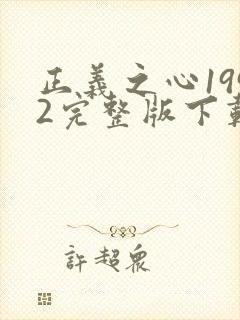 正義之心199
2完整版下載
許超眾